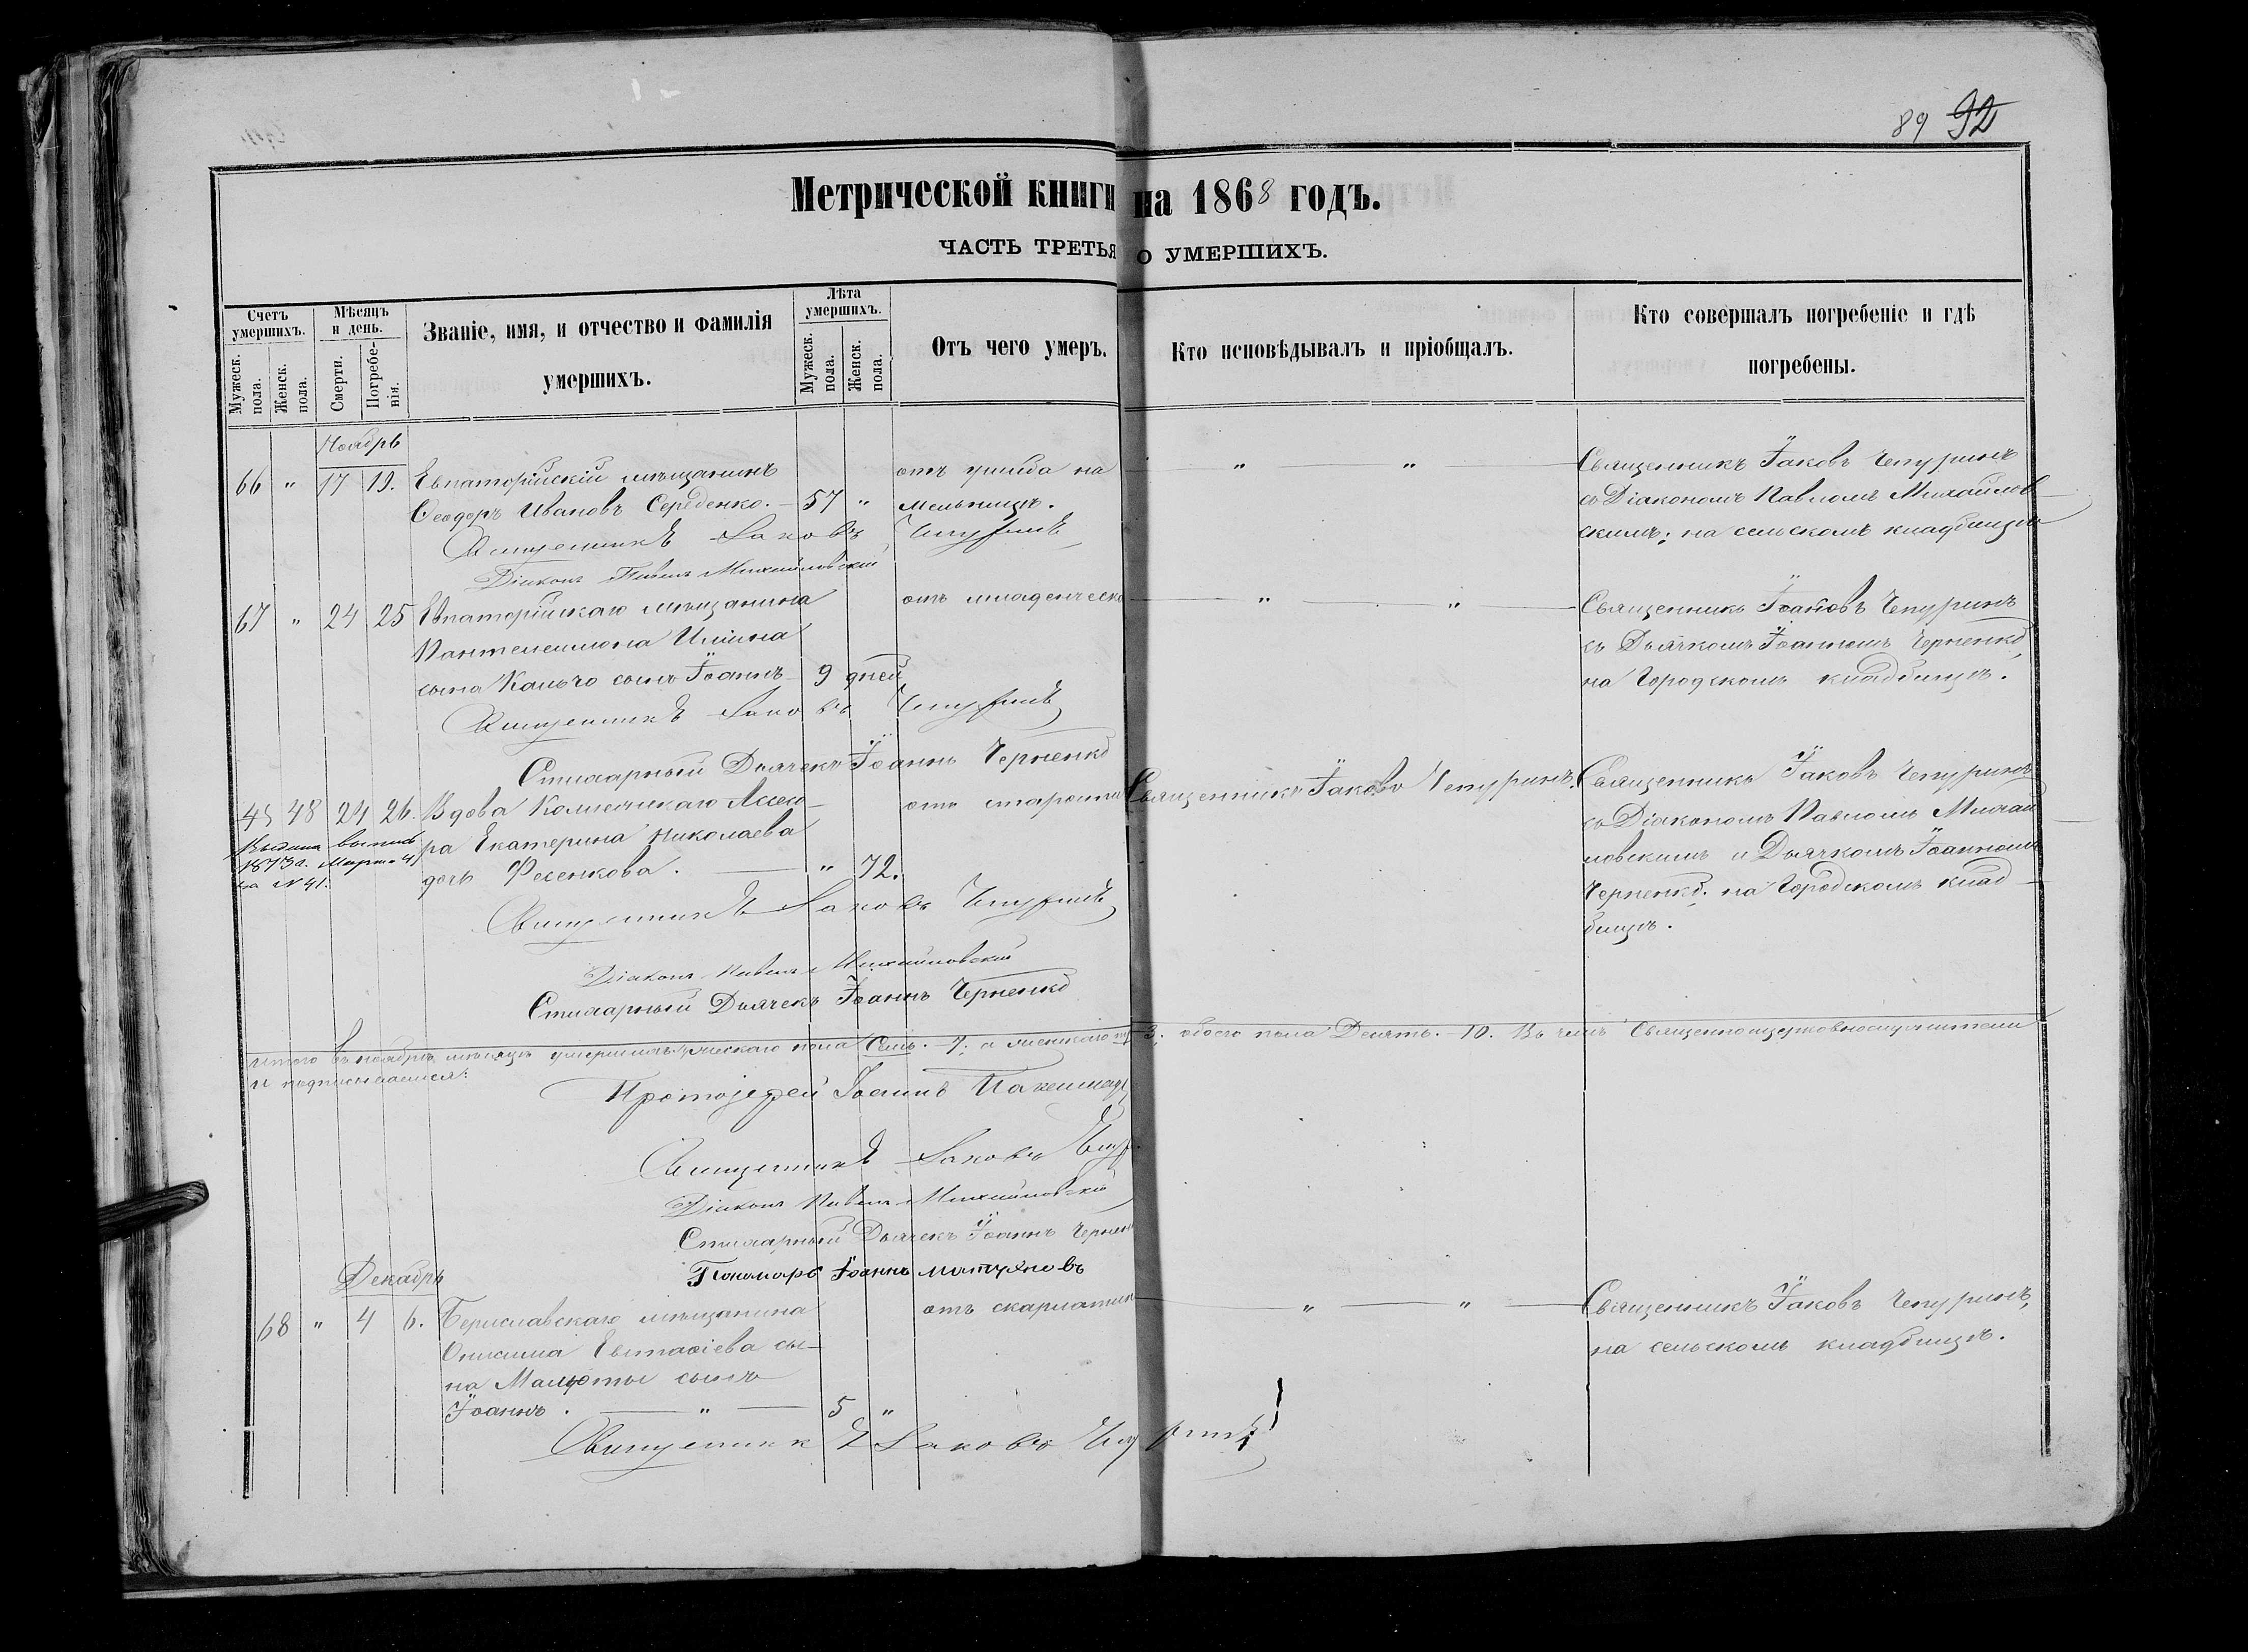 89 92
Метрической книги на 1868 годъ.
ЧАСТЬ ТРЕТЬЯ О УМЕРШИХЪ.
Счетъ умершихъ.
Мужеск. пола.
Женск. пола.
Мѣсяцъ и день.
Смерти.
Погребе-нія.
Званіе, имя, и отчество и фамилія
умершихъ.
Лѣта умершихъ.
Мужеск. пола.
Женск. пола.
Отъ чего умеръ.
Кто исповѣдывалъ и пріобщалъ.
Кто совершалъ погребеніе и гдѣ
погребены.
Ноябрь
66 " 17 19. Евпаторійскій мѣщанинъ отъ ушиба на " " Священникъ Іаковъ Чепуринъ
Ѳеодоръ Ивановъ Середенко. 57 " мельницѣ. съ Діакономъ Павломъ Михайлов
скимъ; на сельскомъ кладбищѣ
Священникъ Іаковъ Чепуринъ
Діаконъ Павелъ Михайловскій
67 " 24 25 Евпаторійскаго мѣщанина отъ младенческо " " Священникъ Іаковъ Чепуринъ
Пантелеимона Ильина съ Дьячкомъ Іоанномъ Черненко,
сына Кальчо сынъ Іоаннъ 9 дней на Городскомъ кладбищѣ.
Священникъ Іаковъ Чепуринъ
Стихарный Дьячекъ Іоаннъ Черненко
48 24 26. Вдова Коллежскаго Ассесо- отъ старости Священникъ Іаковъ Чепуринъ. Священникъ Іаковъ Чепуринъ
ра Екатерина Николаева съ Діакономъ Павломъ Михай
дочь Фесенкова. " 72. ловскимъ и Дьячкомъ Іоанномъ
Черненко. на Городскомъ клад-
бищѣ.
Выдана выпись
1873 г. Марта 4
за № 41.
Священникъ Іаковъ Чепуринъ
Діаконъ Павелъ Михайловскій
Стихарный Дьячекъ Іоаннъ Черненко
Итого въ ноябрѣ мѣсяцѣ умершихъ мужескаго пола Семь. 7; а женскаго 3; обоего пола Десять. 10. Въ чемъ Священноцерковнослужители
и подписываемся:
Протоіерей Іоаннъ
Священникъ Іаковъ Чепур
Діаконъ Павелъ Михайловскій
Стихарный Дьячекъ Іоаннъ Черненк
Пономарь Іоаннъ
Декабрь
68 " 4 6. Бериславскаго мѣщанина отъ скарлатин " " Священникъ Іаковъ Чепуринъ,
Онисима Евстафіева сы- на сельскомъ кладбищѣ.
на Малюты сынъ
Іоаннъ. " 5 "
Священникъ Іаковъ Чепуринъ